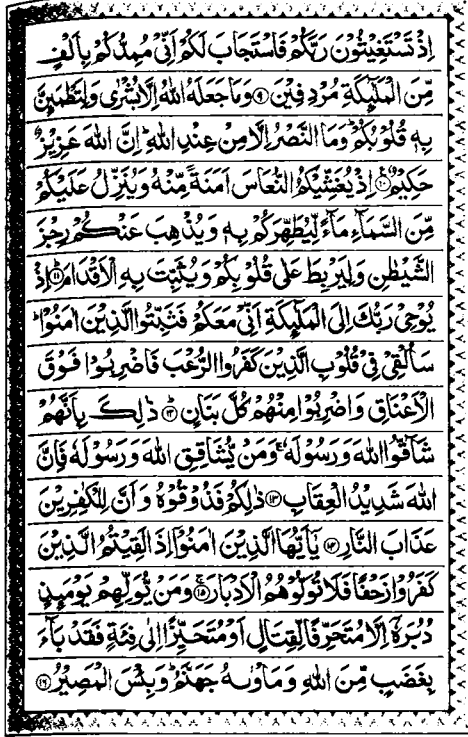 اِذْ تَسْتَغِيْثُوْنَ رَبَّكُمْ فَاسْتَجَابَ لَكُمْ اَنِّىْ مُمِدُّكُمْ بِاَلْفٍ
مِّنَ الْمَلٰٓئِكَةِ مُرْدِفِيْنَ ۹ وَمَا جَعَلَهُ اللّٰهُ اِلَّا بُشْرٰى وَلِتَطْمَئِنَّ
بِهٖ قُلُوْبُكُمْ ؕ وَمَا النَّصْرُ اِلَّا مِنْ عِنْدِ اللّٰهِ ؕ اِنَّ اللّٰهَ عَزِيْزٌ
حَكِيْمٌ ۱۰ اِذْ يُغَشِّيْكُمُ النُّعَاسَ اَمَنَةً مِّنْهُ وَيُنَزِّلُ عَلَيْكُمْ
مِّنَ السَّمَآءِ مَآءً لِّيُطَهِّرَكُمْ بِهٖ وَيُذْهِبَ عَنْكُمْ رِجْزَ
الشَّيْطٰنِ وَلِيَرْبِطَ عَلٰى قُلُوْبِكُمْ وَيُثَبِّتَ بِهِ الْاَقْدَامَ ۱۱ اِذْ
يُوْحِىْ رَبُّكَ اِلَى الْمَلٰٓئِكَةِ اَنِّىْ مَعَكُمْ فَثَبِّتُوا الَّذِيْنَ اٰمَنُوْا ؕ
سَاُلْقِىْ فِىْ قُلُوْبِ الَّذِيْنَ كَفَرُوا الرُّعْبَ فَاضْرِبُوْا فَوْقَ
الْاَعْنَاقِ وَاضْرِبُوْا مِنْهُمْ كُلَّ بَنَانٍ ۱۲ ذٰلِكَ بِاَنَّهُمْ
شَآقُّوا اللّٰهَ وَرَسُوْلَهٗ ۚ وَمَنْ يُّشَاقِقِ اللّٰهَ وَرَسُوْلَهٗ فَاِنَّ
اللّٰهَ شَدِيْدُ الْعِقَابِ ۱۳ ذٰلِكُمْ فَذُوْقُوْهُ وَاَنَّ لِلْكٰفِرِيْنَ
عَذَابَ النَّارِ ۱۴ يٰٓاَيُّهَا الَّذِيْنَ اٰمَنُوْٓا اِذَا لَقِيْتُمُ الَّذِيْنَ
كَفَرُوْا زَحْفًا فَلَا تُوَلُّوْهُمُ الْاَدْبَارَ ۱۵ وَمَنْ يُّوَلِّهِمْ يَوْمَئِذٍ
دُبُرَهٗٓ اِلَّا مُتَحَرِّفًا لِّقِتَالٍ اَوْ مُتَحَيِّزًا اِلٰى فِئَةٍ فَقَدْ بَآءَ
بِغَضَبٍ مِّنَ اللّٰهِ وَمَاْوٰىهُ جَهَنَّمُ ؕ وَبِئْسَ الْمَصِيْرُ ۱۶